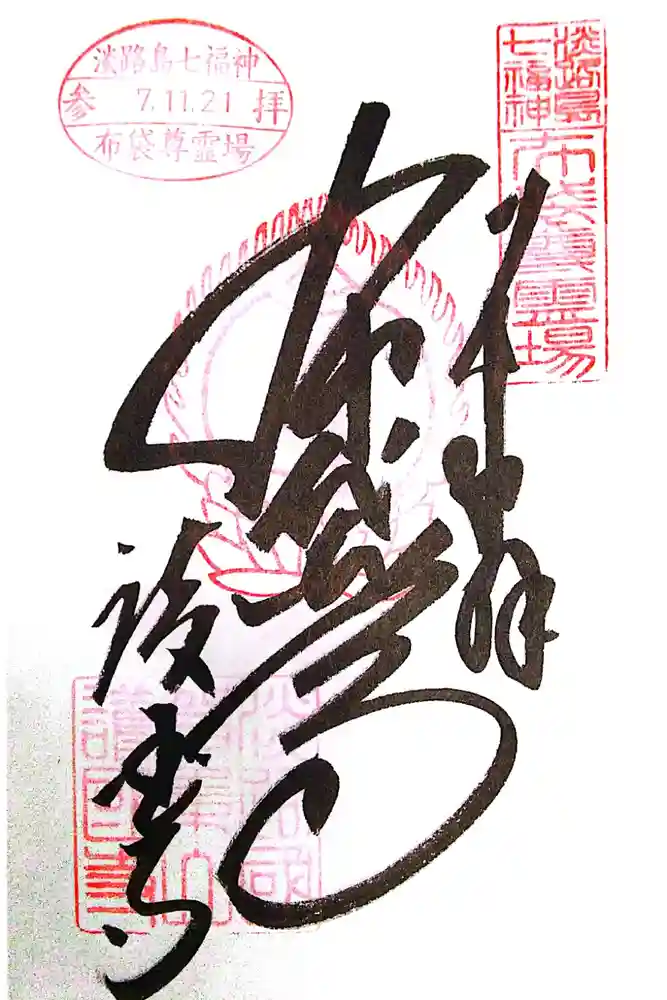 淡路島七福神
参 7.11.21 拝
布袋尊霊場
淡路島
七福神
布袋尊霊場
奉拝
布袋尊
護国寺
淡路國
護国寺